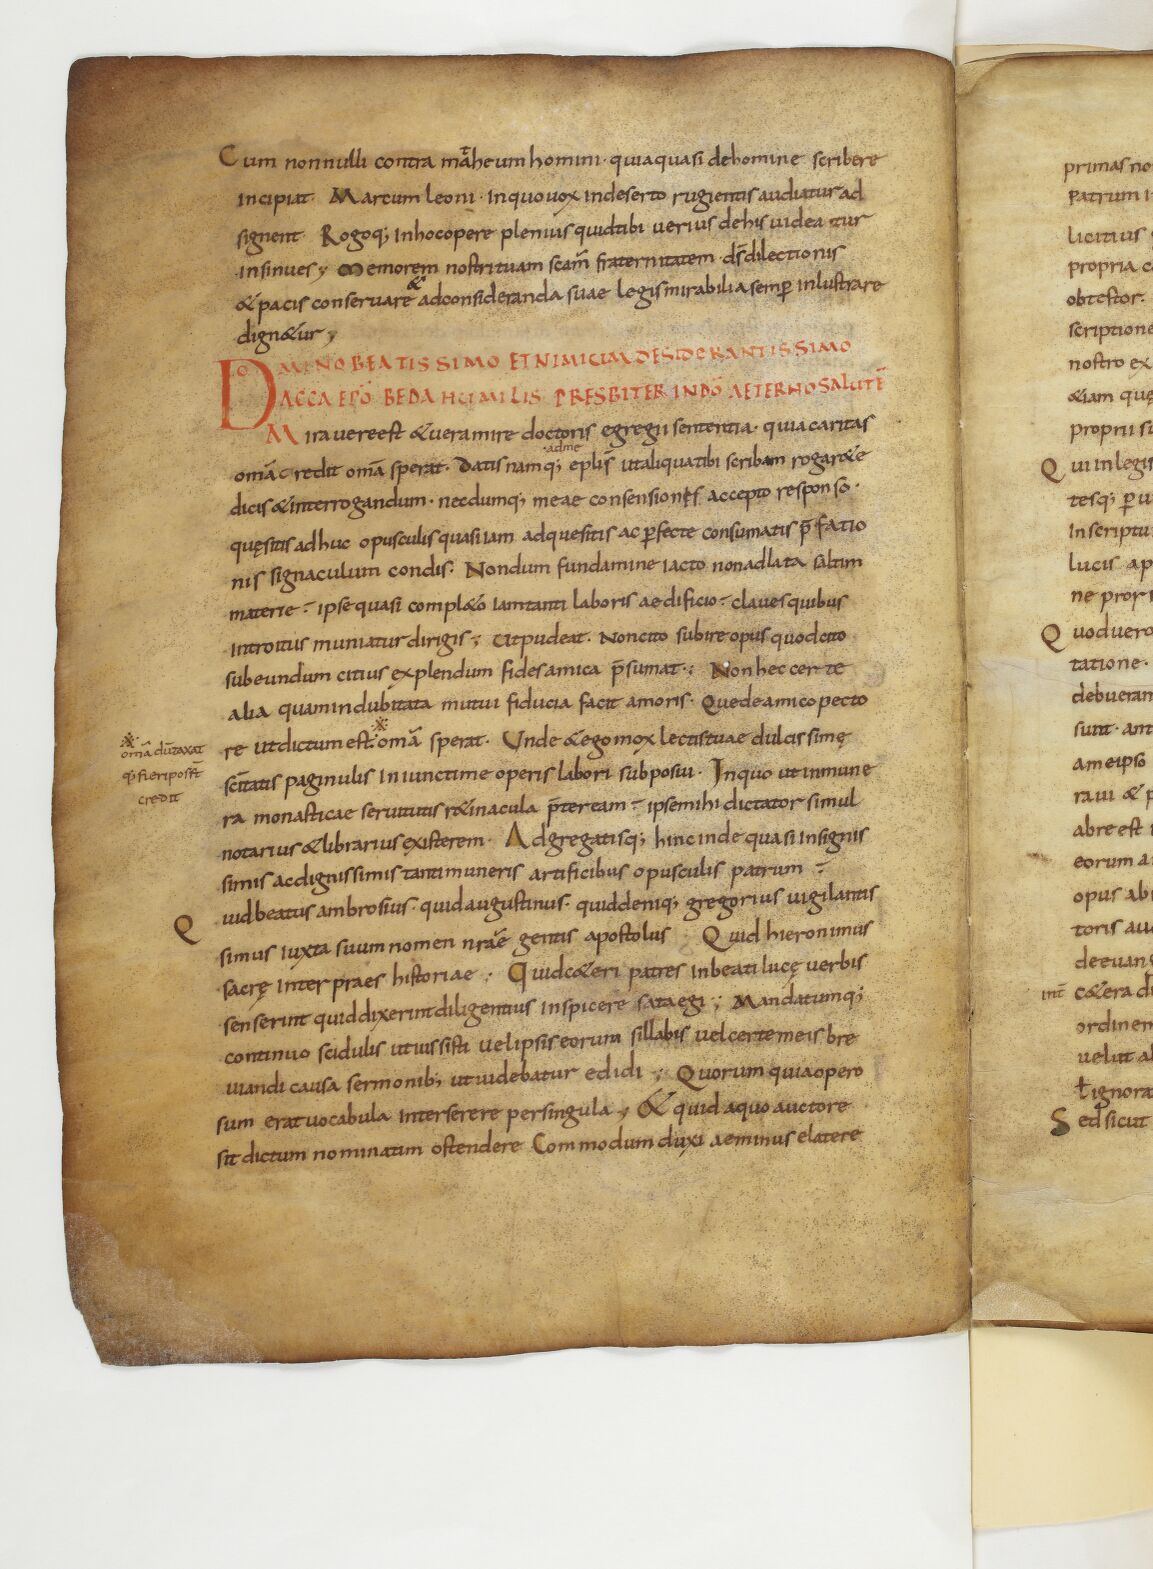 Cum nonnulli contra matheum homini· quia quasi dehomine scribere
incipiat· Marcum leoni· inquo uox indeserto rugientis audiatur ad
signent· Rogoq; inhocopere plenius quid tibi uerius dehis uideatur
insinues; Memorem nostri tuam scam̄ fraternitatem· ds̄ dilectionis
& pacis conseruare & adconsideranda suae legis mirabilia semp̄ inlustrare
dign&ur;
DOMINO BEATISSIMO ET NIMIUM DESIDERANTISSIMO
ACCA EPŌ BEDA HUMILIS PRESBITER IN DŌ AETERNO SALUTĒ
Mira uere est & uera mire doctoris egregii sententia· quia caritas
omā credit omā sperat· Datis namq; ad me eplīs ut aliqua tibi scribam rogar&e
dicis & interrogandum· necdumq; meae consensiones accepto responso·
quęsitis adhuc opusculis quasi iam adquesitis ac ꝑfecte consumatis p̄fatio
nis signaculum condis· Nondum fundamine iacto non adlata saltim
materie· ipse quasi compl&o iam tanti laboris aedificio· claues quibus
introitus muniatur dirigis; Ut pudeat· Non cito subire opus quod cito
subeundum citius explendum fides amica p̄sumat·; Non hec certe
alia quam indubitata mutui fiducia facit amoris· Que de amico pecto
re ut dictum est· omā sperat· Unde & ego mox lectis tuae dulcissimę
scītatis paginulis iniuncti me operis labori subposui· In quo ut inmune
ra monasticae seruitutis r&inacula p̄teream· ipse mihi dictator simul
notarius & librarius existerem· Adgregatisq; hinc inde quasi insignis
simis ac dignissimis tanti muneris artificibus opusculis patrum·
omā du͞taxat
q; fieri posse
credit
Quid beatus ambrosius· quid augustinus· quid deniq; gregorius uigilantis
simus iuxta suum nomen nr̄ae gentis apostolus Quid hieronimus
sacrę interpraes historiae; Quid c&eri patres in beati lucę uerbis
senserint quid dixerint diligentius inspicere sategi; Mandatumq;
continuo scidulis ut iussisti uel ipsis eorum sillabis uel certe meis bre
uiandi causa sermonib; ut uidebatur edidi; Quorum quia opero
sum erat uocabula interserere per singula; & quid a quo auctore
sit dictum nominatim ostendere Commodum duxi aeminus e latere
primas no
patrum i
licitius
propria c
obtestor·
scriptione
nostro ex
&iam quę
proprii su
Qui in legis
tesq; ꝑ u
Inscriptu
lucis ap
ne prori
Quod uero
tatione·
debueram
sunt· ant
ameipso
raui & p
abre est
eorum a
opus abi
toris auc
de euang
c&era di
ordinem
uelut al
ignora
Sed sicut